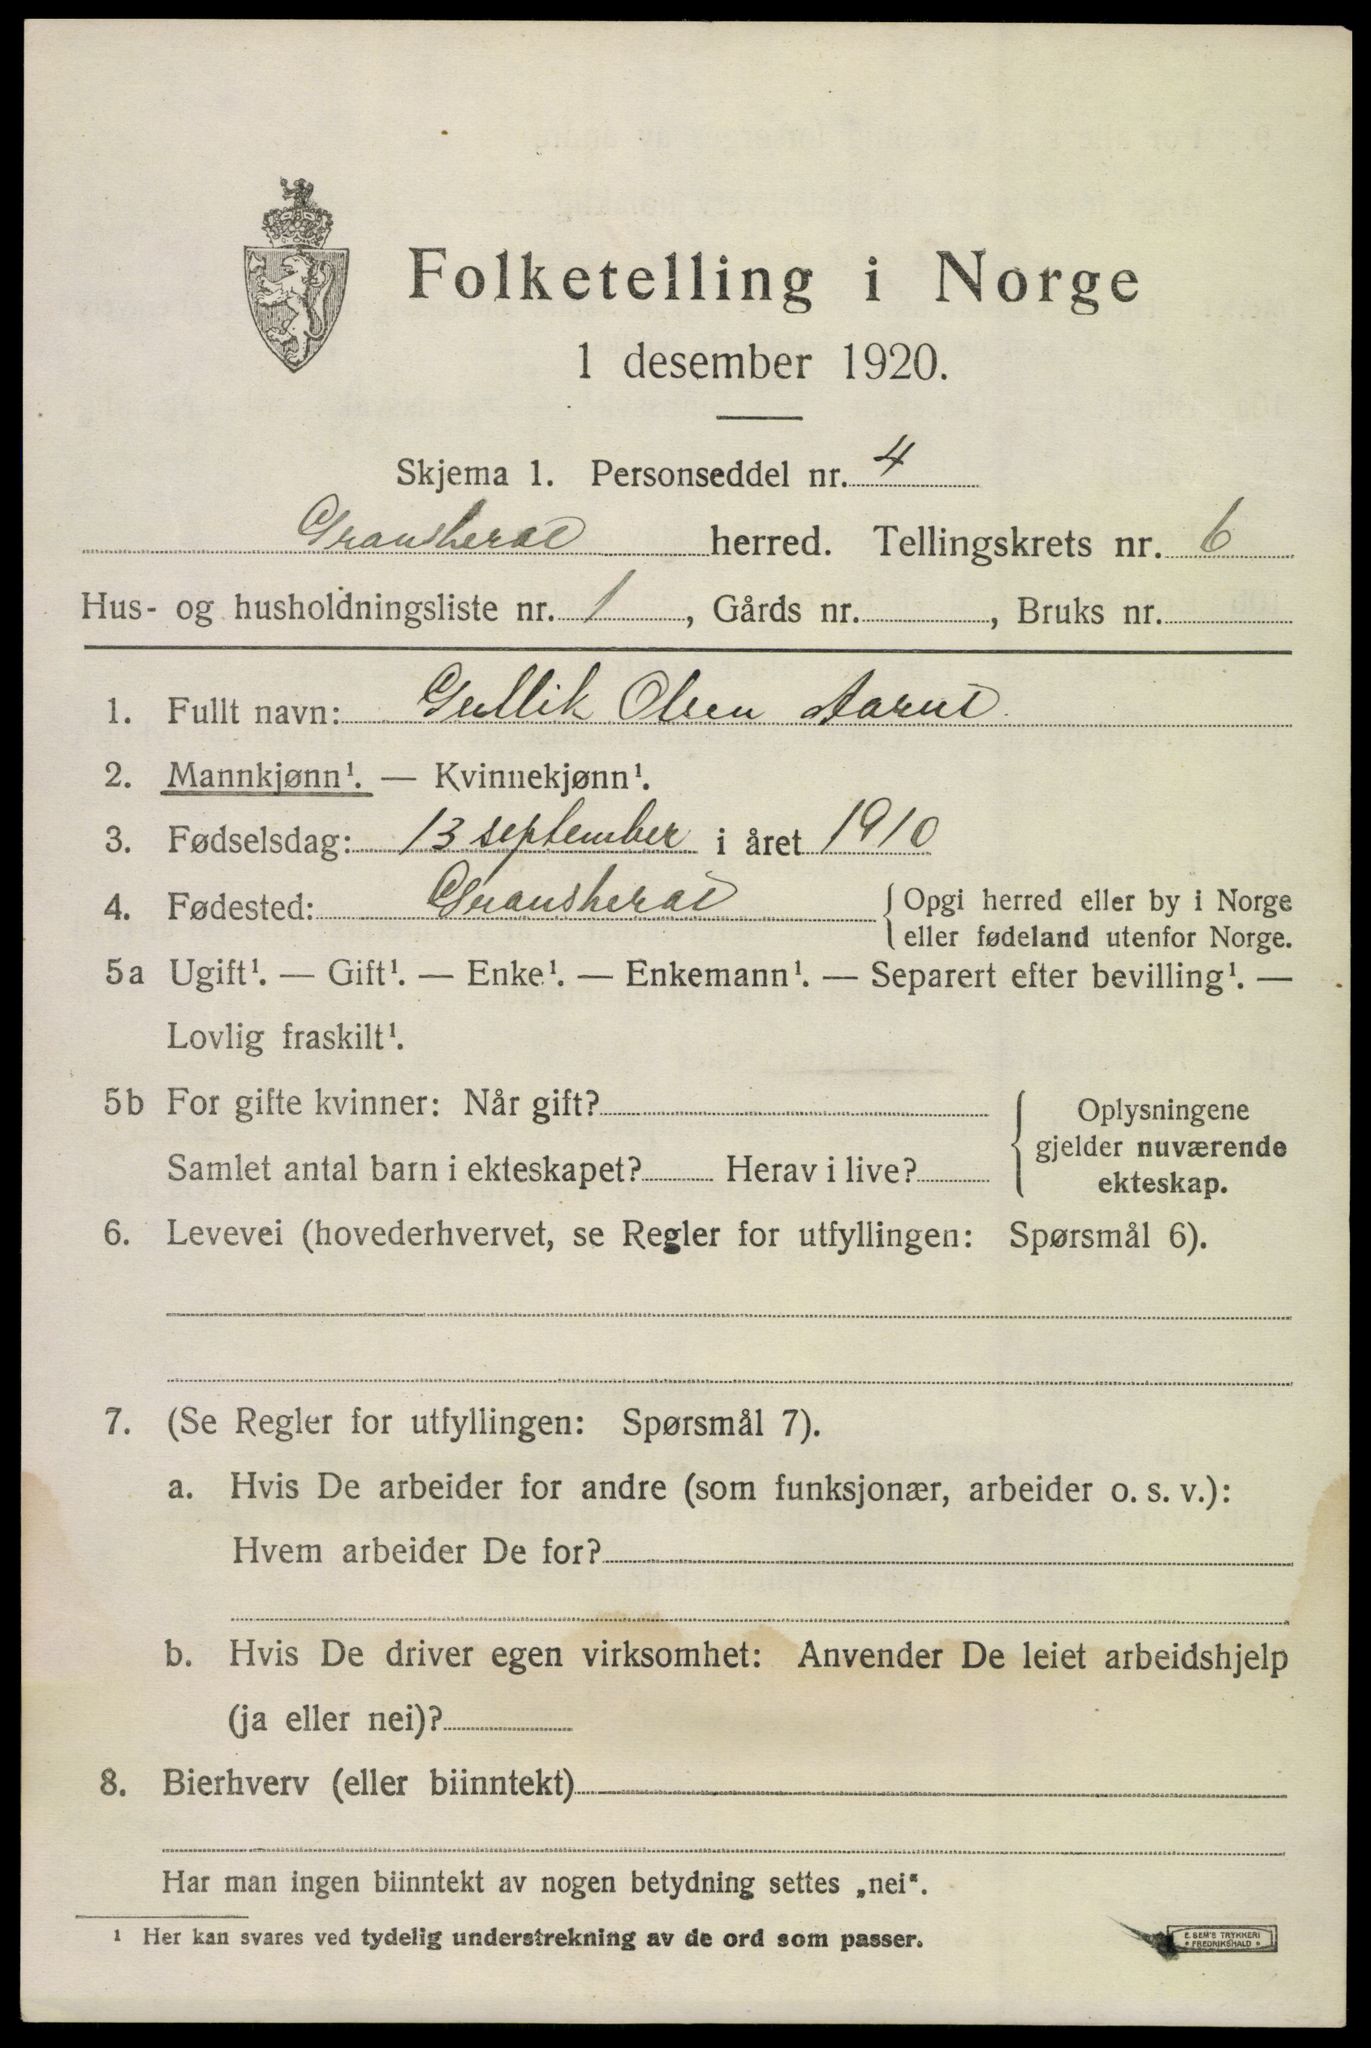 Folketelling i Norge
1 desember 1920.
Skjema 1. Personseddel nr. 4
Gransherad herred. Tellingskrets nr. 6
Hus- og husholdningsliste nr. 1, Gårds nr. , Bruks nr.
1. Fullt navn: Gullik Olsen Aarnes
2. Mannkjønn¹. — Kvinnekjønn¹.
3. Fødselsdag: 13 september i året 1910
4. Fødested: Gransherad { Opgi herred eller by i Norge
eller fødeland utenfor Norge.
5a Ugift¹. — Gift¹. — Enke¹. — Enkemann¹. — Separert efter bevilling¹. —
Lovlig fraskilt¹.
5b For gifte kvinner: Når gift?
Samlet antal barn i ekteskapet? Herav i live?
{ Oplysningene
gjelder nuværende
ekteskap.
6. Levevei (hovederhvervet, se Regler for utfyllingen: Spørsmål 6).
7. (Se Regler for utfyllingen: Spørsmål 7).
a. Hvis De arbeider for andre (som funksjonær, arbeider o. s. v.):
Hvem arbeider De for?
b. Hvis De driver egen virksomhet: Anvender De leiet arbeidshjelp
(ja eller nei)?
8. Bierhverv (eller biinntekt)
Har man ingen biinntekt av nogen betydning settes „nei“.
¹ Her kan svares ved tydelig understrekning av de ord som passer.
E. SEM'S TRYKKERI
* FREDRIKSHALD *